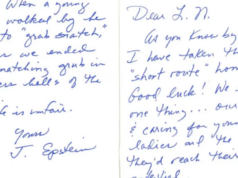 When a young
walked by he
to "grab snatch,"
we ended
snatching grub in
halls of the
Life is unfair.
Yours
J. Epstein
Dear L. N.
As you know by
I have taken th
"short route" hom
Good luck! We
one thing... our
& caring for youn
ladies and the
they'd reach their